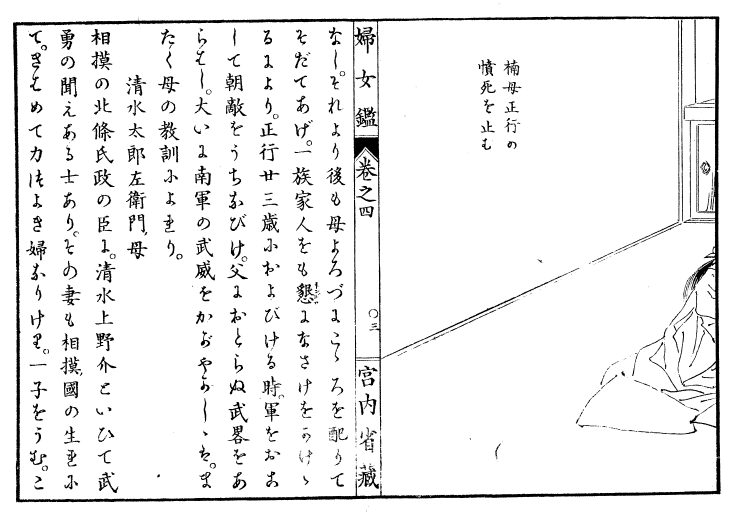 楠母正行の
憤死を止む
婦女鑑 卷之四 〇三 宮内省藏
なし。それより後も母よろづにこゝろを配りて
そだてあげ。一族家人をも懇になさけをかけゝ
るにより。正行廿三歳におよびける時。軍をおこ
して朝敵をうちなびけ。父におとらぬ武畧をあ
らはし。大いに南軍の武威をかゞやかしゝは。ま
たく母の教訓によれり。
清水太郎左衛門母
相摸の北條氏政の臣に。清水上野介といひて武
勇の聞えある士あり。その妻も相摸國の生れに
て。きはめて力つよき婦なりけり。一子をうむ。こ